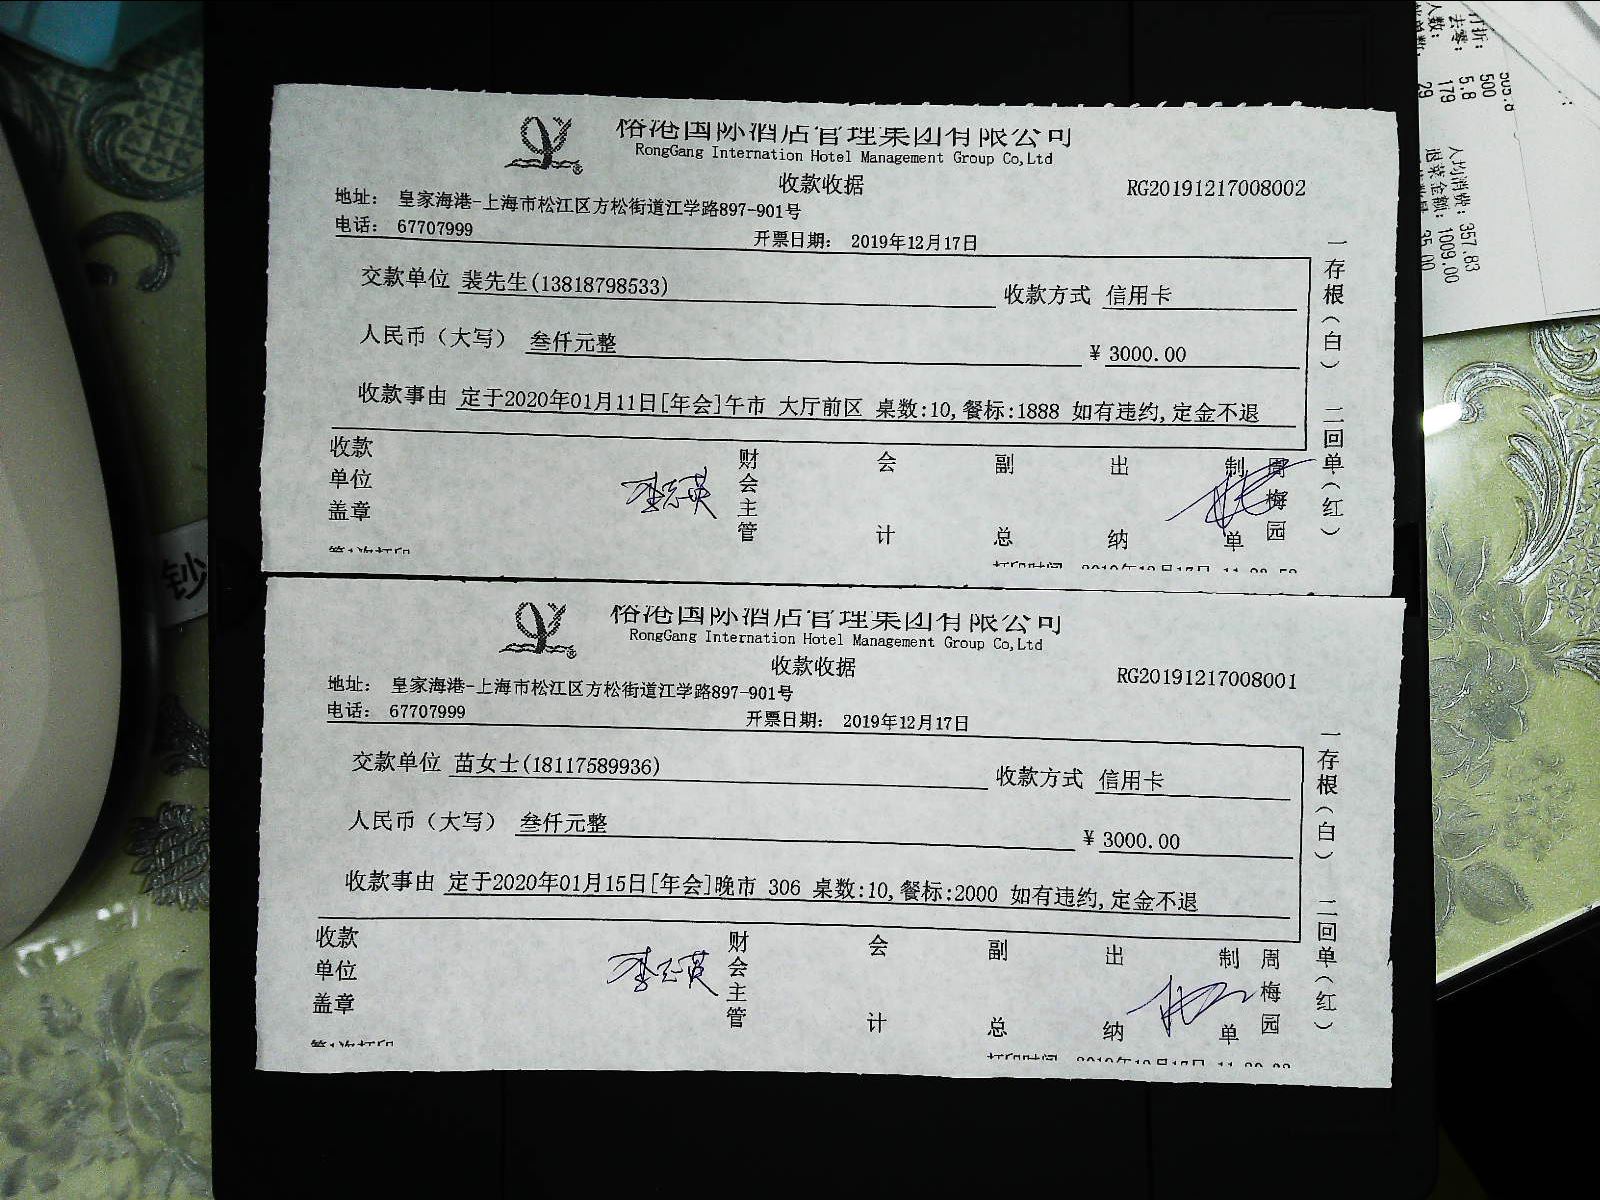 榕港国际酒店管理集团有限公司
RongGang Internation Hotel Management Group Co,Ltd
收款收据
RG20191217008002
地址： 皇家海港-上海市松江区方松街道江学路897-901号
电话： 67707999
开票日期： 2019年12月17日
交款单位 裴先生(13818798533)
收款方式 信用卡
人民币（大写） 叁仟元整
¥ 3000.00
收款事由 定于2020年01月11日[年会]午市 大厅前区 桌数:10,餐标:1888 如有违约,定金不退
一存根（白） 二回单（红）
收款单位盖章
财会主管
会计
副总
出纳
制单
周梅园
第1次打印
打印时间
榕港国际酒店管理集团有限公司
RongGang Internation Hotel Management Group Co,Ltd
收款收据
RG20191217008001
地址： 皇家海港-上海市松江区方松街道江学路897-901号
电话： 67707999
开票日期： 2019年12月17日
交款单位 苗女士(18117589936)
收款方式 信用卡
人民币（大写） 叁仟元整
¥ 3000.00
收款事由 定于2020年01月15日[年会]晚市 306 桌数:10,餐标:2000 如有违约,定金不退
一存根（白） 二回单（红）
收款单位盖章
财会主管
会计
副总
出纳
制单
周梅园
第1次打印
打印时间
钞
打折: 500
去零: 5.8
人数: 179
29
人均消费: 357.83
退菜金额: 1009.00